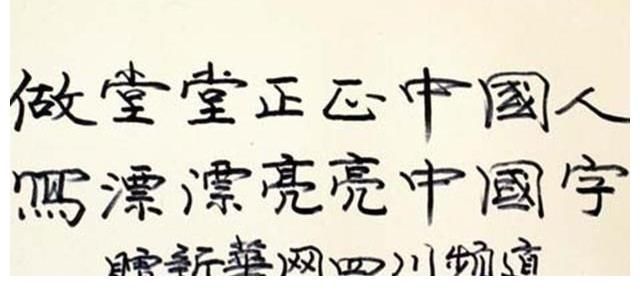 做堂堂正正中國人
写漂漂亮亮中國字
赠新華网四川频道